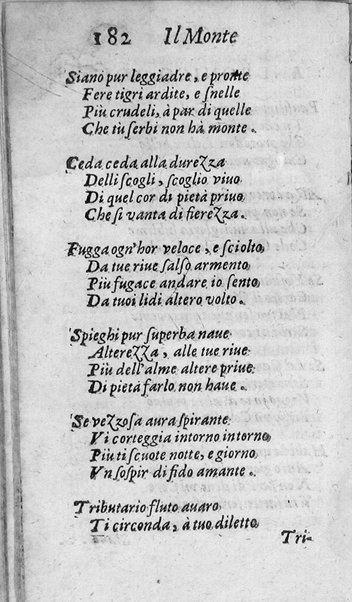 182 Il Monte
Siano pur leggiadre, e pronte
Fere tigri ardite, e snelle
Più crudeli, à par di quelle
Che tù serbi non hà monte.
Ceda ceda alla durezza
Delli scogli, scoglio viuo
Di quel cor di pietà priuo,
Che si vanta di fierezza.
Fugga ogn'hor veloce, e sciolto,
Da tue riue salso armento,
Più fugace andare io sento,
Da tuoi lidi altero volto.
Spieghi pur superba naue
Alterezza, alle tue riue
Più dell'alme altere priue,
Di pietà farlo non haue.
Se vezzosa aura spirante
Vi corteggia intorno intorno,
Più ti scuote notte, e giorno,
Vn sospir di fido amante.
Tributario fluto auaro,
Ti circonda, à tuo diletto,
Tri-